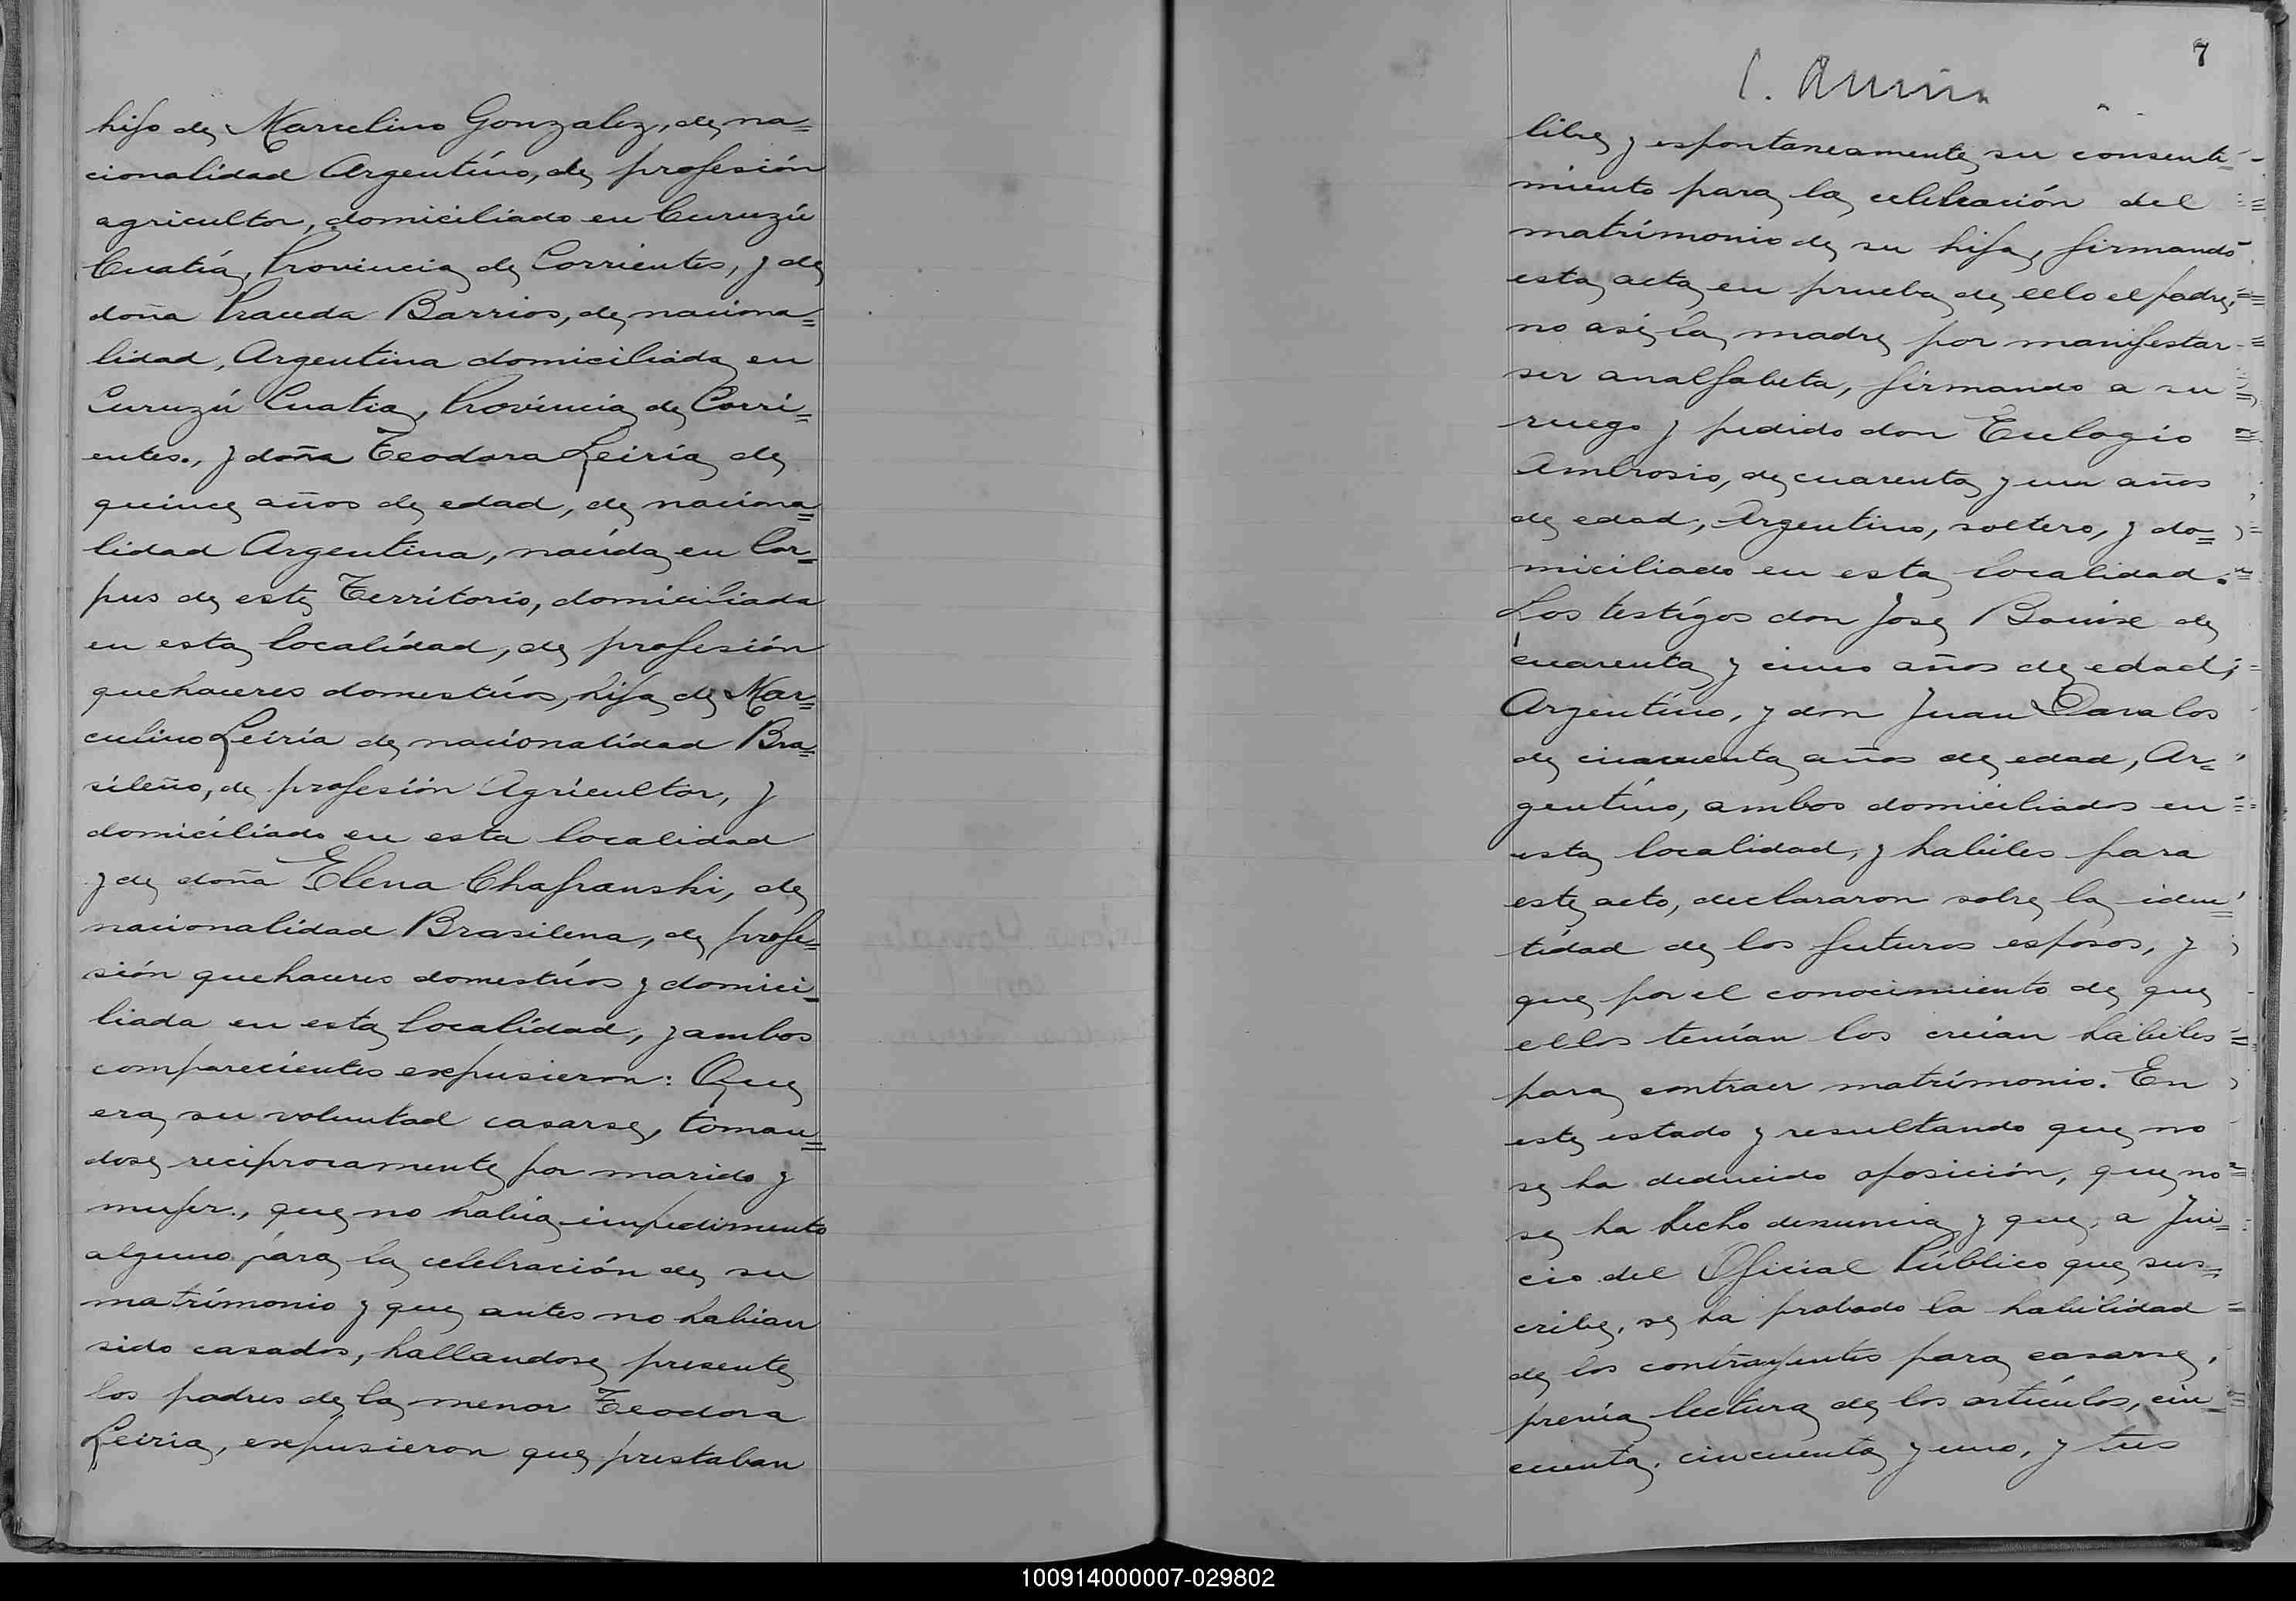 hijo de Marcelino Gonzalez, de na=
cionalidad Argentíno, de profesión
agricultor, domiciliado en Curuzú
Cuatía, Provincia de Corrientes, y de
doña Praceda Barrios, de naciona=
lidad, Argentina domiciliada en
Curuzú Cuatia, Provincia de Corri=
entes., y doña Teodora Leiria de
quince años de edad, de naciona=
lidad Argentina, nacída en Cor=
pus de este Territorio, domiciliada
en esta localidad, de profesión
quehaceres domestícos, hija de Mar=
culino Leiria de nacionalidad Bra=
sileño, de profesión Agricultor, y
domicíliado en esta localidad
y de doña Elena Chafranski, de
nacionalidad Brasilena, de profe=
sión quehaceres domestícos y domici=
liada en esta localidad, y ambos
comparecientes expusieron: Que
era su voluntad casarse, toman=
dose reciprocamente por marido y
mujer., que no había impedimento
alguno para la celebración de su
matrímonio y que antes no habian
sido casados, hallandose presente
los padres de la menor Teodora
Leiria, expusieron que prestaban
7
libre y espontaneamente su consenti=
miento para la celebración del
matrímonio de su hija, firmando
esta acta en prueba de ello el padre,
no así la madre por manifestar
ser analfabeta, firmando a su
ruego y pedido don Eulogio
Ambrosio, de cuarenta y un años
de edad, Argentino, soltero, y do=
miciliado en esta localidad.
Los testígos don Jose de
cuarenta y cinco años de edad,
Argentíno, y don Juan Davalos
de cincuenta años de edad, Ar=
gentíno, ambos domiciliados en
esta localidad, y habiles para
este acto, declararon sobre la iden=
tidad de los futuros esposos, y
que por el conocimiento de que
ellos tenían los creían habiles
para contraer matrímonio. En
este estado y resultando que no
se ha deducido oposición, que no
se ha hecho denuncia y que, a jui=
cio del Oficial Público que sus=
cribe, se ha probado la habilidad
de los contrayentes para casarse,
previa lectura de los artículos, cin=
cuenta, cincuenta y uno, y tres
100914000007-029802